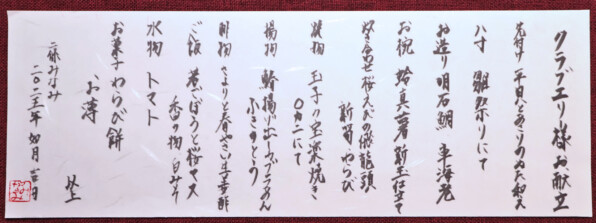 クラブエリー様お献立
先付け 平貝とあさりのぬた和え
八寸 雛祭りにて
お造り 明石鯛 車海老
お椀 蛤真薯 新玉仕立て
炊き合わせ 桜えびの飛龍頭
新筍 わらび
焼物 玉子の宝楽焼き
〇カニにて
揚物
ふきのとう
酢物 さよりと春やさい土佐酢
ご飯 煮ごぼうと桜マス
香の物
水物 トマト
お菓子 わらび餅
お薄
以上
二〇二五年 如月 吉日